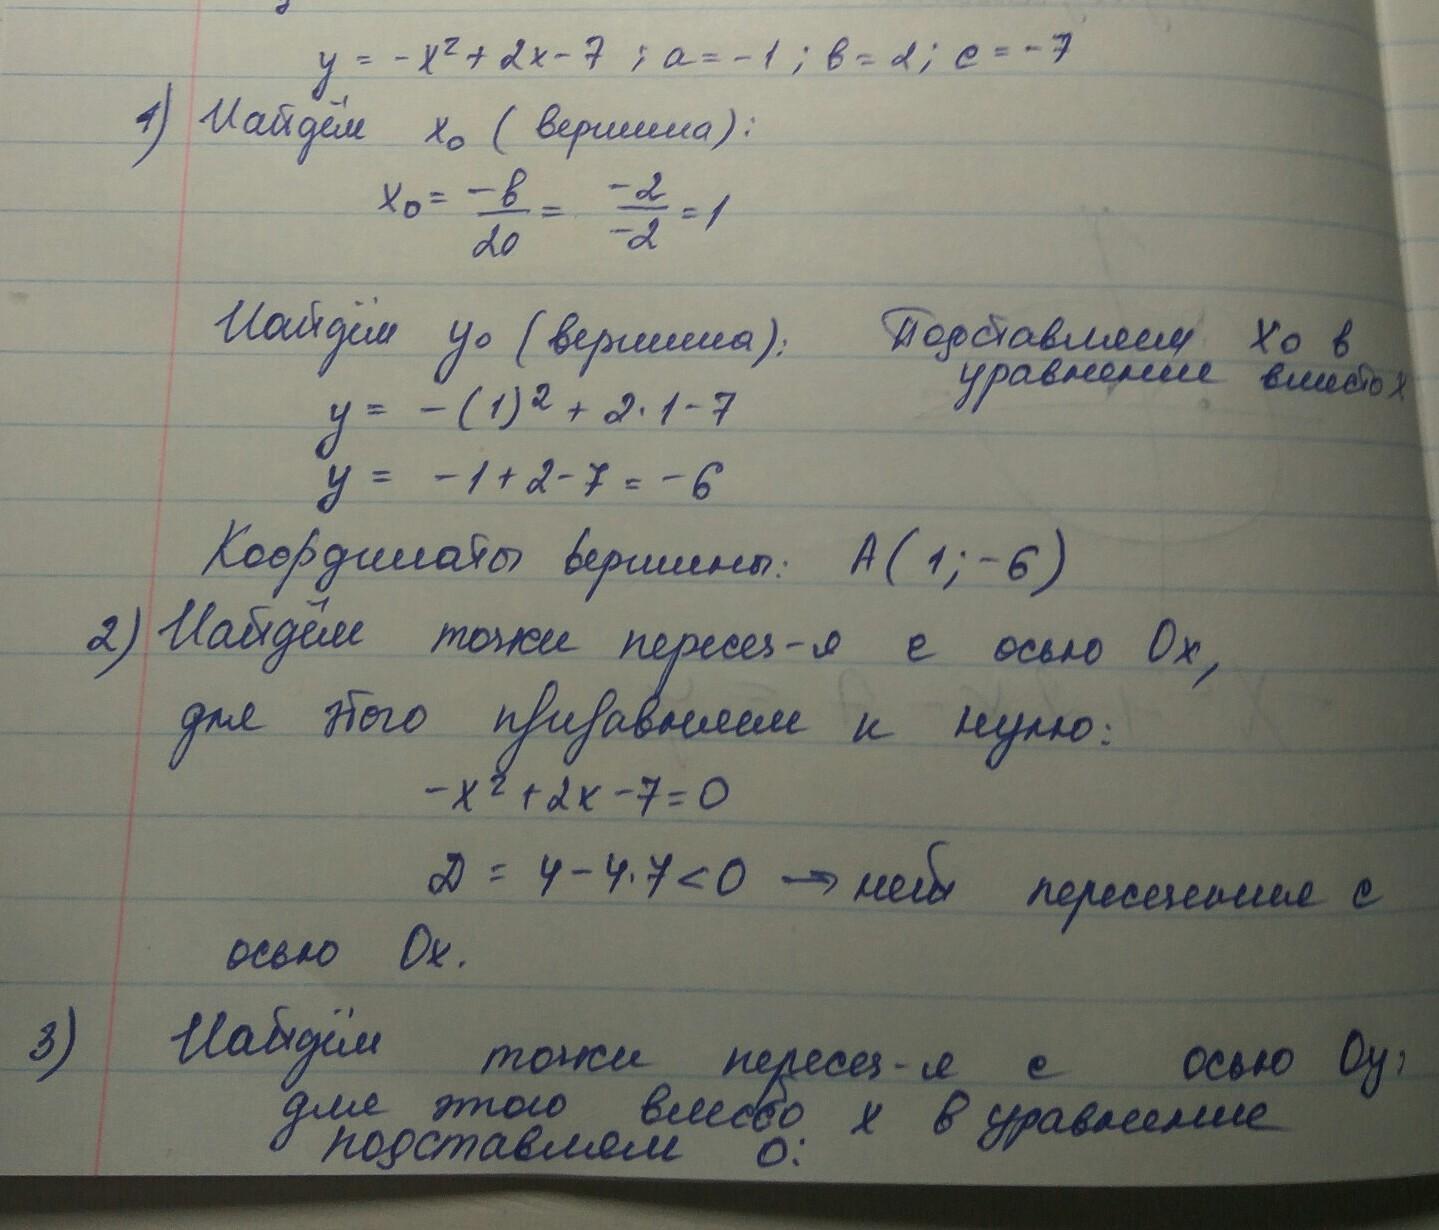 y = -x² + 2x - 7 ; a = -1 ; в = 2 ; c = -7
1) Найдём x₀ ( вершина ) :
x₀ = -в/2a = -2/-2 = 1
Найдём y₀ ( вершина ) : Подставляем x₀ в
уравнение вместо x
y = -(1)² + 2·1 - 7
y = -1 + 2 - 7 = -6
Координаты вершины: A ( 1 ; -6 )
2) Найдём точки пересеч-я с осью Ox,
для этого приравняем к нулю:
-x² + 2x - 7 = 0
D = 4 - 4·7 < 0 → нет пересечение с
осью Ox.
3) Найдём точки пересеч-я с осью Oy,
для этого вместо x в уравнение
подставляем 0: